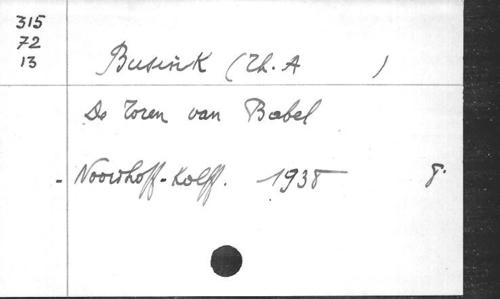 315
72
13
Busink (Th. A )
De Toren van Babel
- Noordhoff-Kolff. 1938 8.